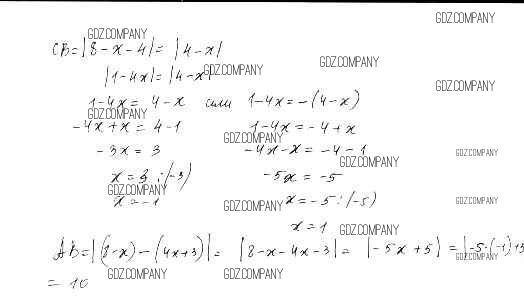 GDZ.COMPANY
GDZ.COMPANY
CB=|8-x-4|= |4-x|
GDZ.COMPANY
|1-4x|= |4-x|
GDZ.COMPANY
GDZ.COMPANY
1-4x= 4-x или 1-4x=-(4-x)
GDZ.COMPANY
-4x+x= 4-1 1-4x=-4+x
GDZ.COMPANY
-3x= 3 -4x-x= -4-1
GDZ.COMPANY
GDZ.COMPANY
x=3 :(-3) -5x=-5
GDZ.COMPANY
x=-1 x=-5:(-5)
GDZ.COMPANY
GDZ.COMPANY
x=1
GDZ.COMPANY
AB=|(8-x)-(4x+3)|= |8-x-4x-3|= |-5x+5|=|-5·(-1)+5
GDZ.COMPANY
=10
GDZ.COMPANY
GDZ.COMPANY